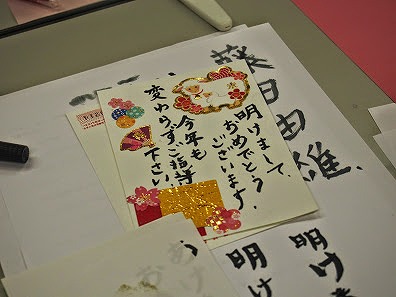 明けまして、
おめでとう
ございます。
今年も
変わらずご指導
下さい
藤田由雄
明け
明けま
あけ
お